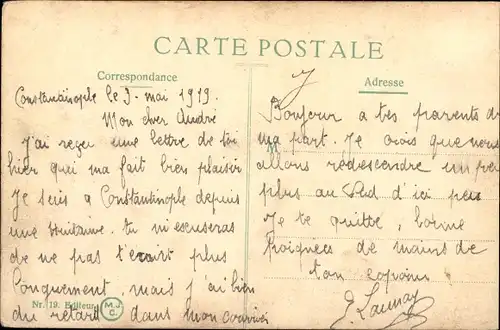 CARTE POSTALE
Correspondance
Constantinople le 3 - mai 1919.
Mon cher André
J'ai reçu une lettre de toi
hier qui ma fait bien plaisir
Je suis a Constantinople depuis
une huitaine. tu m'escuseras
de ne pas t'écrire plus
longuement, mais j'ai bien
du retard dans mon courrier
Nr. 19. Editeur M.J.C.
Adresse
Bonjour a tes parents de
ma part. Je crois que nous
allons redescendre un peu
plus au Sud d'ici peu
Je te quitte, bonne
poignées de mains de
ton copain
J. Launay